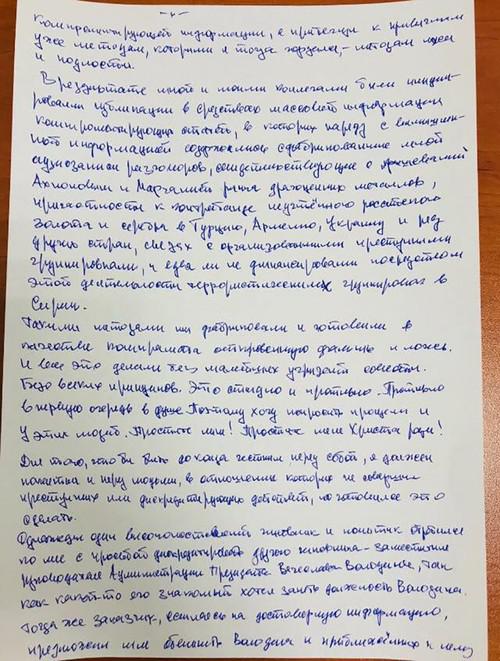 - 4 -
компрометирующей информации, а прибегли к привычным
уже методам, которыми я тогда гордился, – методам лжи
и подлости.
В результате мной и моими коллегами были иниции-
рованы публикации в средствах массовой информации
компрометирующих статей, в которых наряду с вымышлен-
ной информацией содержались сфабрикованные мной
аудиозаписи разговоров, свидетельствующие о
Ахполовым и Маргалием рынка драгоценных металлов,
причастности к контрабанде неучтённого российского
золота и серебра в Турцию, Армению, Украину и ряд
других стран, связях с организованными преступными
группировками, и едва ли не финансировании посредством
этой деятельности террористических группировок в
Сирии.
Такими методами мы фабриковали и готовили в
качестве компромата откровенную фальшь и ложь.
И всё это делали без малейших угрызений совести.
Безо всяких принципов. Это стыдно и противно. Противно
в первую очередь в душе. Поэтому хочу попросить прощения и
у этих людей. Простите меня! Простите меня Христа ради!
Для того, чтобы быть до конца честным перед собой, я должен
покаяться и перед людьми, в отношении которых не совершил
преступных или дискредитирующих действий, но готовился это
сделать.
Однажды один высокопоставленный чиновник и политик обратился
ко мне с просьбой дискредитировать другого чиновника – заместителя
руководителя Администрации Президента Вячеслава Володина, так
как какой-то его знакомый хотел занять должность Володина.
Тогда же заказчик, ссылаясь на достоверную информацию,
предложил нам обвинить Володина и приближённых к нему